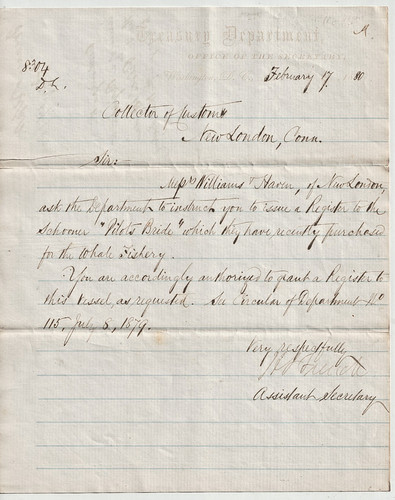 M.
Treasury Department,
OFFICE OF THE SECRETARY,
February 17, 1880.
D.L.
Collector of Customs
New London, Conn.
Sir:
Messrs Williams & Haven, of New London,
ask the Department to instruct you to issue a Register to the
Schooner "Pilot's Bride" which they have recently purchased
for the Whale Fishery.
You are accordingly authorized to grant a Register to
this vessel, as requested. See Circular of Department No
115, July 8, 1879.
Very respectfully
Assistant Secretary